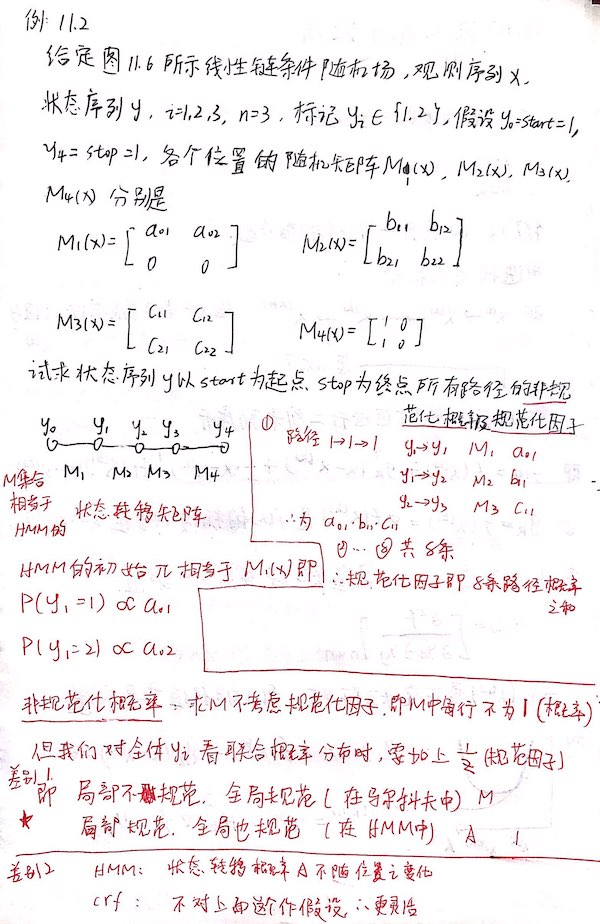 例 11.2
给定图11.6所示线性链条件随机场,观测序列x,
状态序列y, i=1,2,3, n=3, 标记yᵢ∈{1,2},假设y₀=start=1,
y₄=stop=1, 各个位置的随机矩阵M₁(x), M₂(x), M₃(x),
M₄(x) 分别是
M₁(x)=[a₀₁ a₀₂
0 0]
M₂(x)=[b₁₁ b₁₂
b₂₁ b₂₂]
M₃(x)=[C₁₁ C₁₂
C₂₁ C₂₂]
M₄(x)=[1 0
1 0]
试求状态序列y以start为起点 stop为终点所有路径的非规
范化概率及规范化因子
y₀ y₁ y₂ y₃ y₄
M₁ M₂ M₃ M₄
M集合
相当于
HMM的 状态转移矩阵
① 路径 1→1→1
y₀→y₁ M₁ a₀₁
y₁→y₂ M₂ b₁₁
y₂→y₃ M₃ C₁₁
∴为 a₀₁·b₁₁·C₁₁
①…⑧ 共8条
∴规范化因子即 8条路径概率
之和
HMM的初始π相当于M₁(x)即
P(y₁=1) ∝ a₀₁
P(y₁=2) ∝ a₀₂
非规范化概率:求M不考虑规范化因子,即M中每行不为1(概率)
但我们对全体yᵢ看联合概率分布时,要加上 1/Z (规范因子)
差别1
即 局部不规范, 全局规范 (在马尔科夫中) M
★ 局部规范, 全局也规范 (在HMM中) A 1
差别2 HMM: 状态转移概率A不随位置i变化
crf: 不对上面这个作假设 ∴更灵活